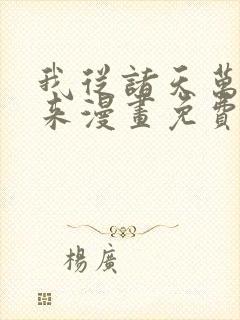 我從諸天萬
來漫畫免費
楊廣